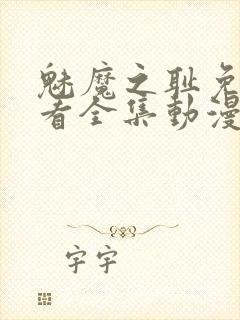 魅魔之耻免
看全集動漫
字宇